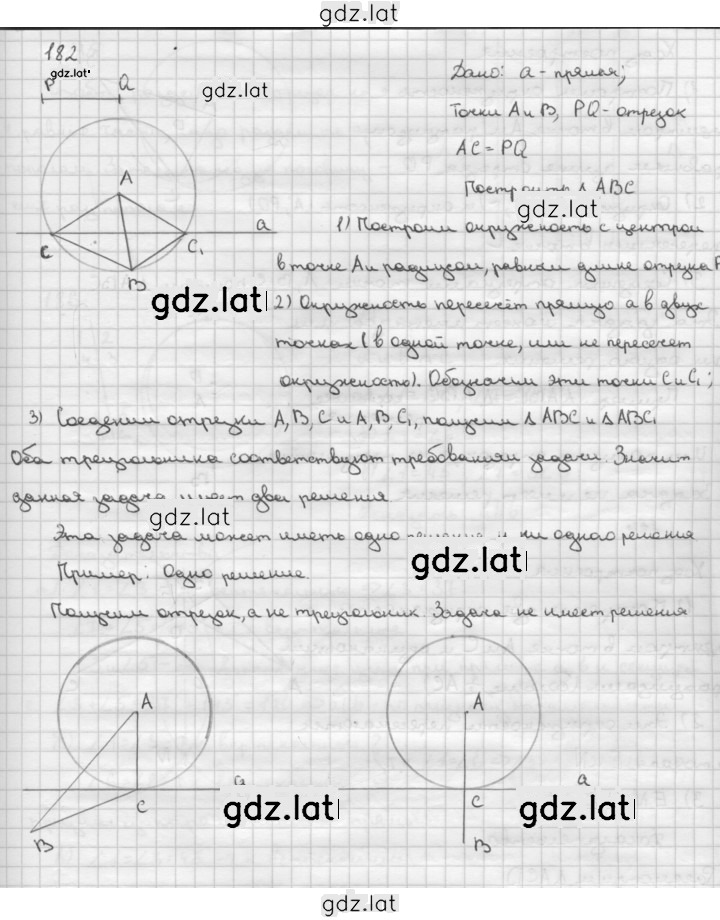 gdz.lat
182
gdz.lat
P Q
gdz.lat
Дано: а - прямая;
Точки А и В, PQ - отрезок
AC = PQ
Построить Δ ABC
gdz.lat
A
a
C C₁
B
1) Построим окружность с центром
в точке А и радиусом, равным длине отрезка P
gdz.lat
2) Окружность пересечёт прямую а в двух
точках (в одной точке, или не пересечет
окружность). Обозначим эти точки С и С₁;
3) Соединим отрезки А, В, С и А, В, С₁, получим Δ ABC и Δ ABC₁
Оба треугольника соответствуют требованиям задачи. Значит
данная задача имеет два решения
gdz.lat
Эта задача может иметь одно решение и ни одного решения
gdz.lat
Пример: Одно решение.
Получим отрезок, а не треугольник. Задача не имеет решения
A
a
C
B
gdz.lat
A
a
C
B
gdz.lat
gdz.lat
gdz.lat